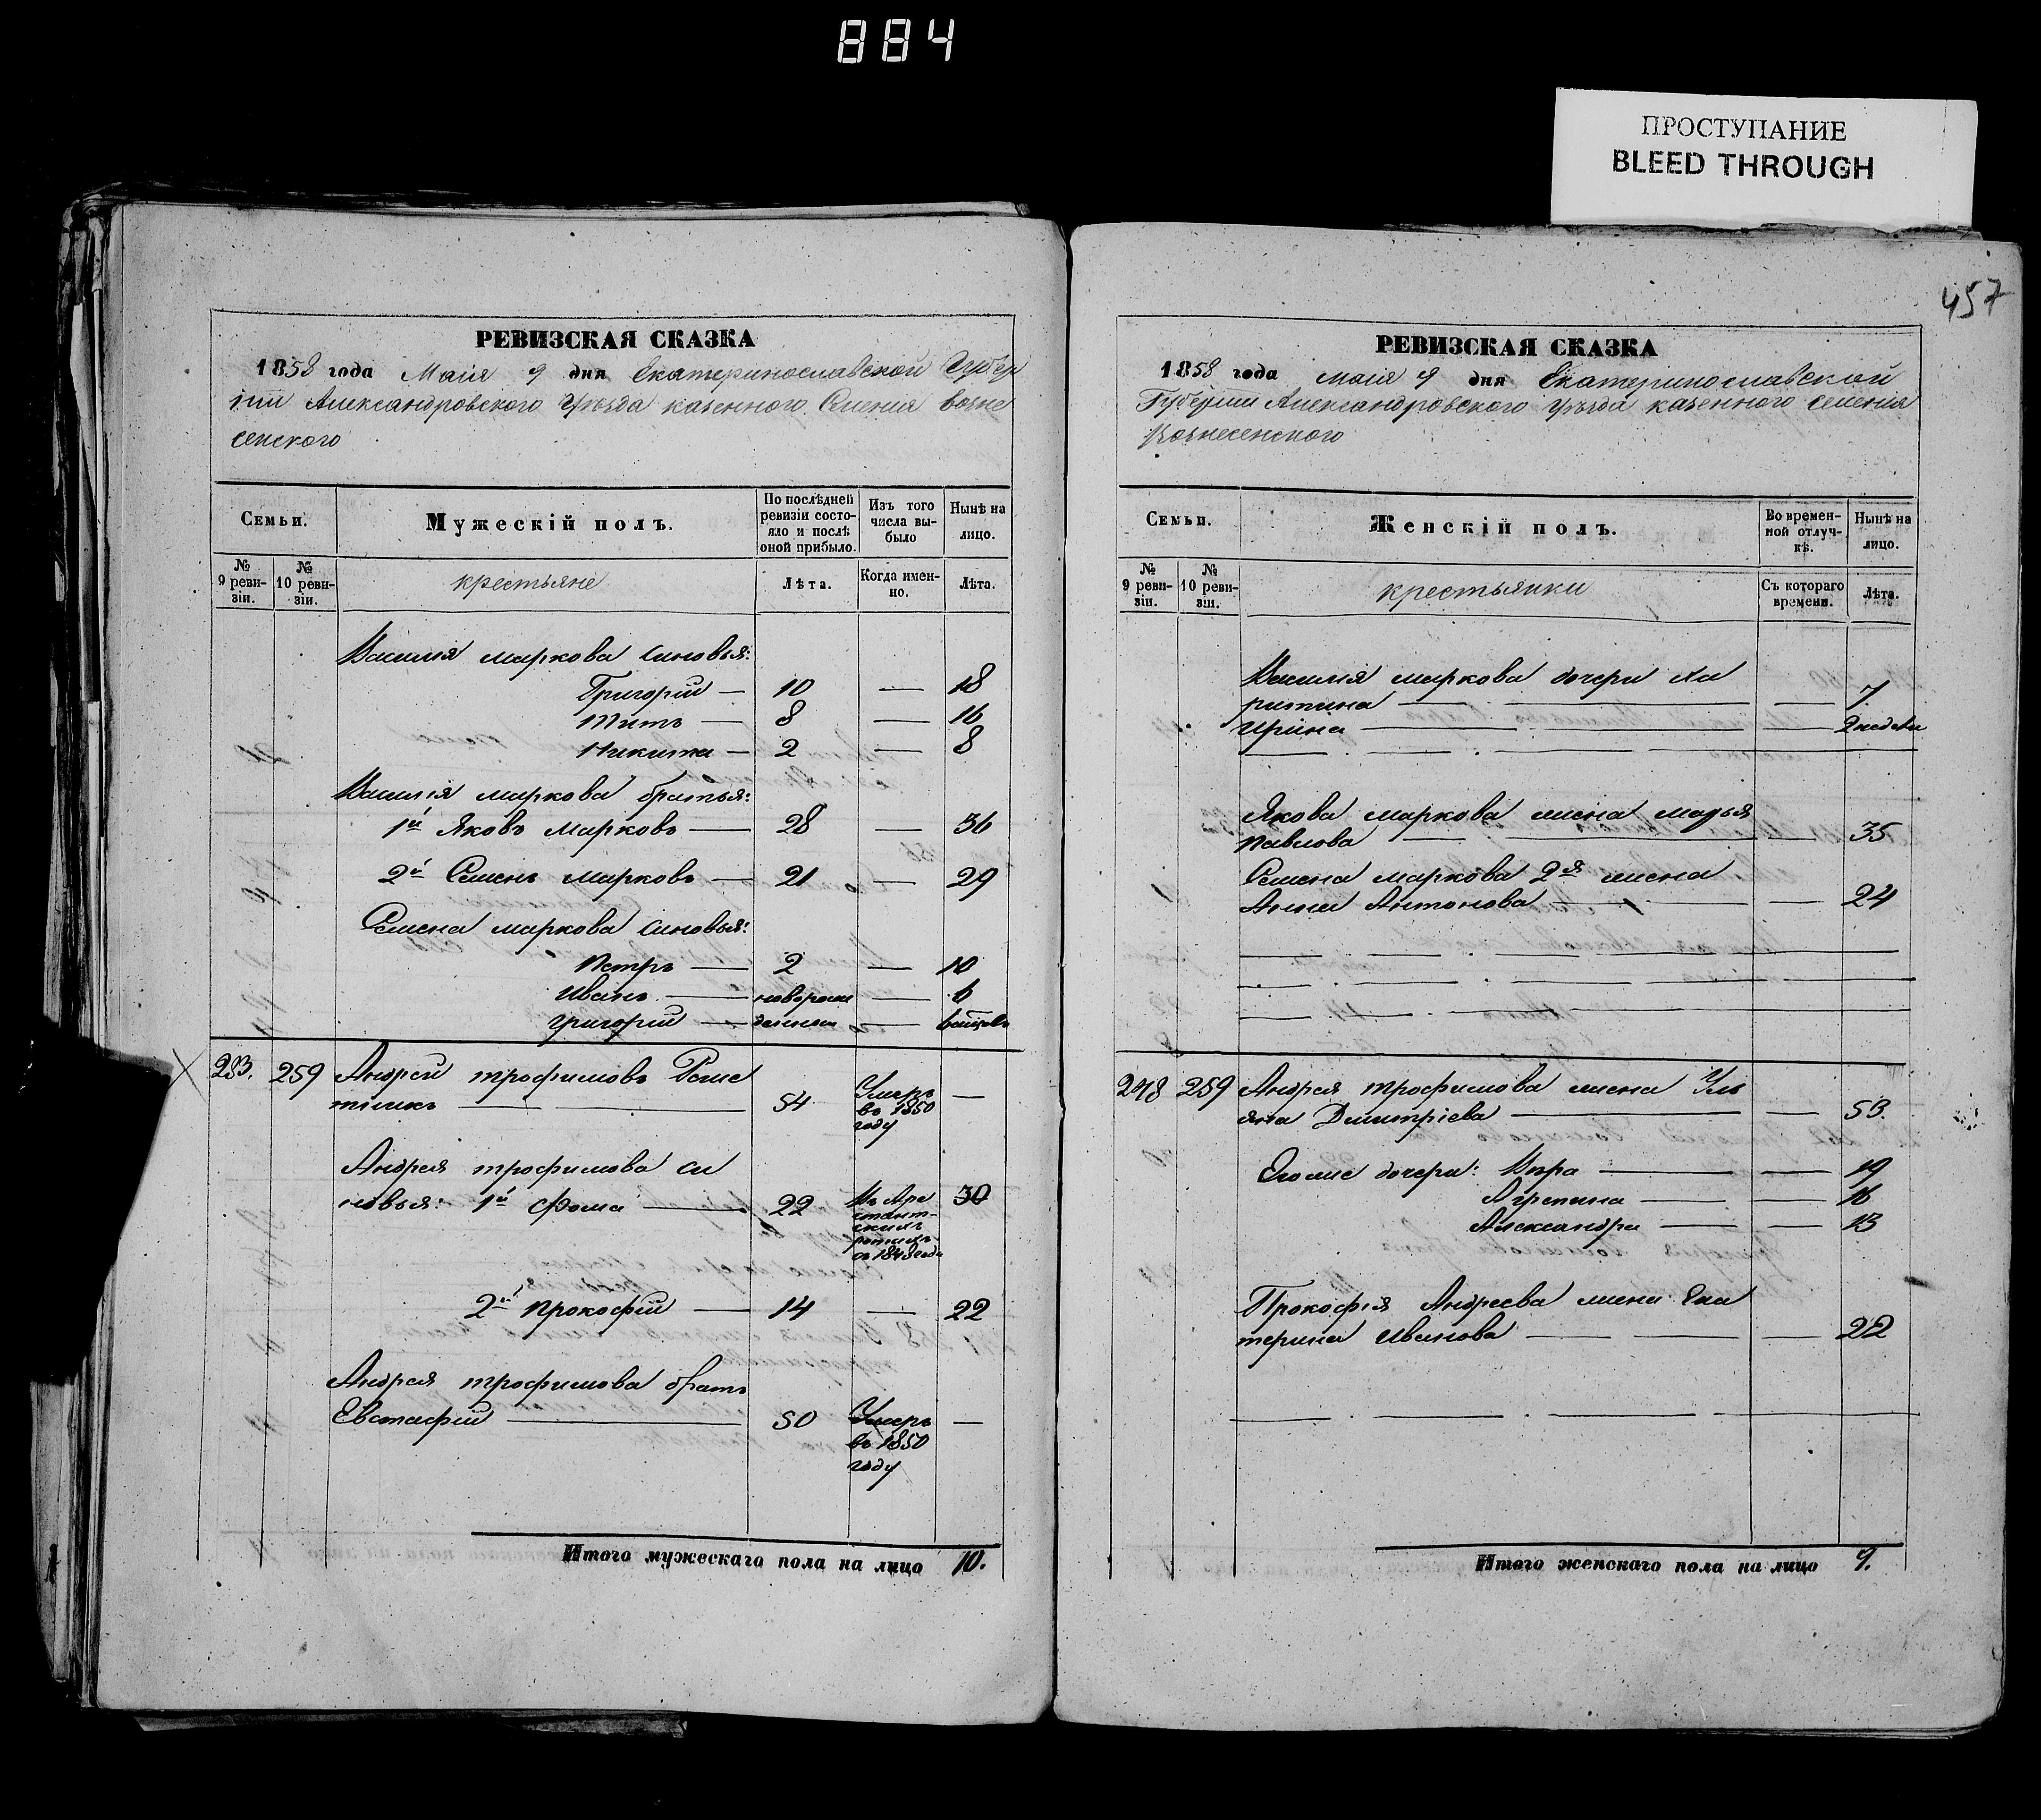 884
ПРОСТУПАНИЕ
BLEED THROUGH
457
РЕВИЗСКАЯ СКАЗКА
1858 года Майя 9 дня Екатеринославской Губер
ніи Александровского Уѣзда казенного Селения возне
сенского
Семьи.
Мужескій полъ.
По послѣдней
ревизіи состо-
яло и послѣ
оной прибыло.
Изъ того
числа вы-
было
Нынѣ на
лицо.
№
9 реви-
зіи.
№
10 реви-
зіи.
крестьяне
Лѣта.
Когда имен-
но.
Лѣта.
Василія маркова синовья:
Григорій — 10 — 18
Титъ — 8 — 16
Никита — 2 — 8
Василія маркова братья:
1й Яковъ Марковъ — 28 — 36
2й Семенъ Марковъ — 21 — 29
Семена маркова синовья:
Петръ — 2 — 10
Иванъ — новорож — 6
Григорій — денныи —
283. 259 Андрей трофимовъ
54 Умеръ
въ 1850
году —
Андрея трофимова си
новья: 1й Фома — 22 30
Въ Аре
стант-
скихъ
ротахъ
съ 1848 года
2й Прокофій — 14 — 22
Андрея трофимова братъ
Евстафій — 50 Умеръ —
въ 1850
году
Итого мужескаго пола на лицо 10.
РЕВИЗСКАЯ СКАЗКА
1858 года майя 9 дня Екатеринославской
Губерніи Александровского Уѣзда казенного селения
Вознесенского
Семьи.
Женскій полъ.
Во времен-
ной отлуч-
кѣ.
Нынѣ на
лицо.
№
9 реви-
зіи.
№
10 реви-
зіи.
крестьянки
Съ котораго
времени.
Лѣта.
Василія маркова дочери Ха
ритина — — 7.
Ирина — — 2 недели
Якова маркова жена марья
Павлова — — 35
Семена маркова 2я жена
Анна Антонова — — 24
248 259 Андрея трофимова жена Уль
яна Дмитріева — — 53.
Егоже дочери: Вѣра — — 19
Агрепина — — 16
Александра — — 13
Прокофія Андреева жена Ека
терина Иванова — — 22
Итого женскаго пола на лицо 9.